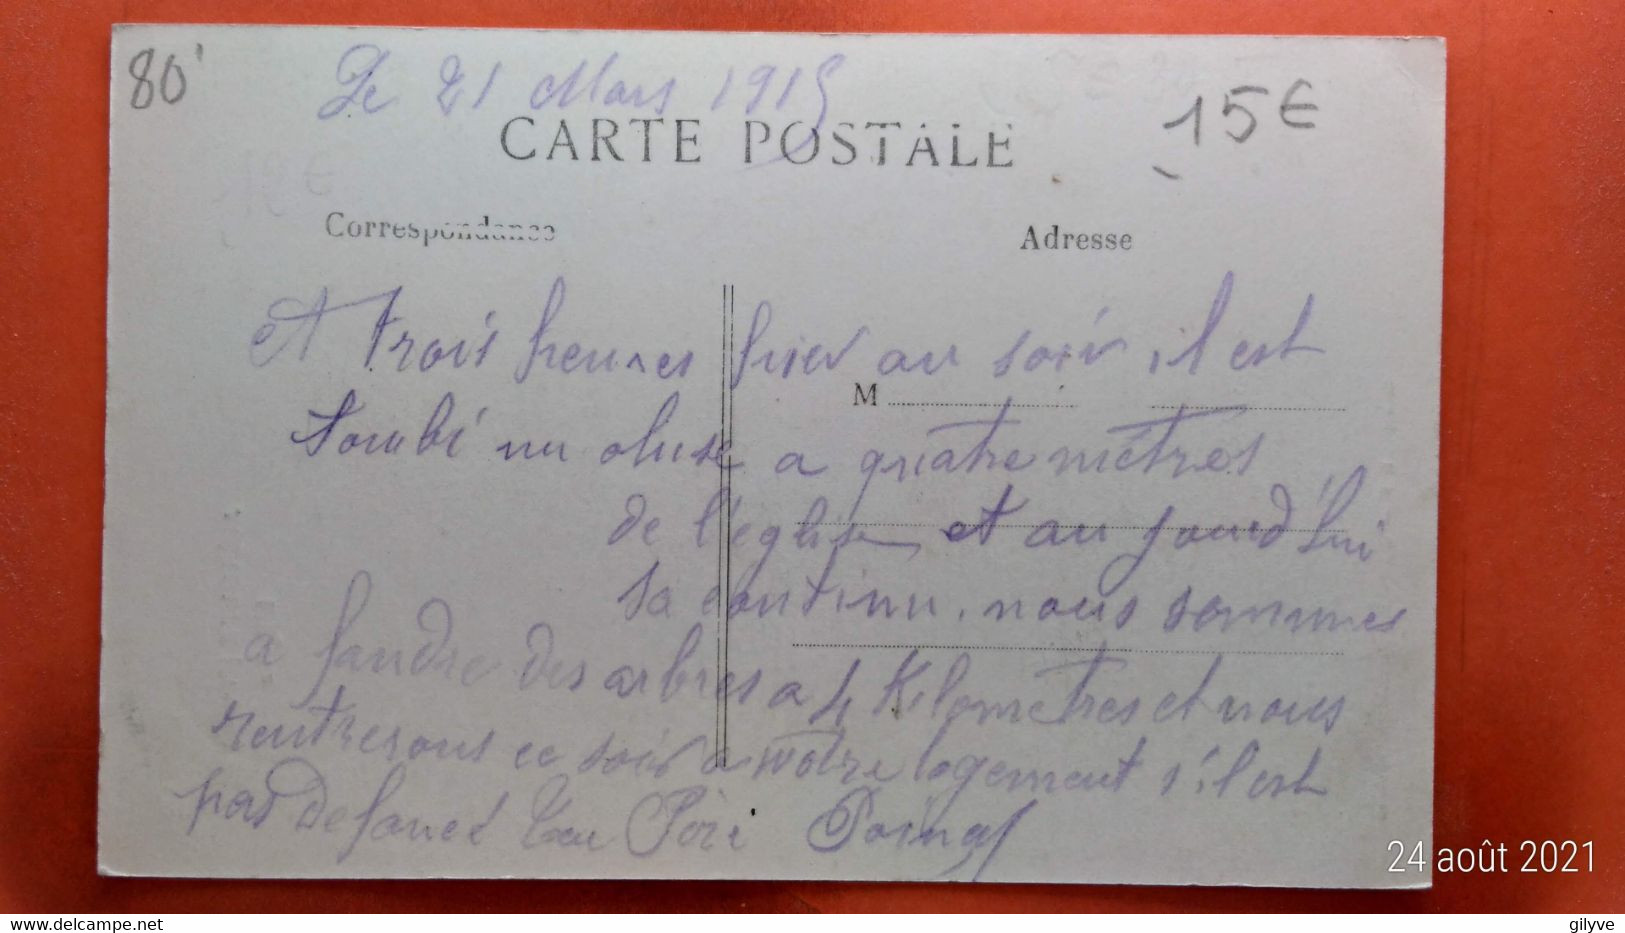 80'
Le 21 Mars 1915
15€
CARTE POSTALE
Correspondance
Adresse
A trois heures hier au soir il est
M
tombé un obuse a quatre mètres
de l'eglise et au jourd'hui
sa continu. nous sommes
a fandre des arbres a 4 Kilomètres et nous
rentrerons ce soir a notre logement s'il est
pas defoncé Ton Père Poinas
24 août 2021
gilyve